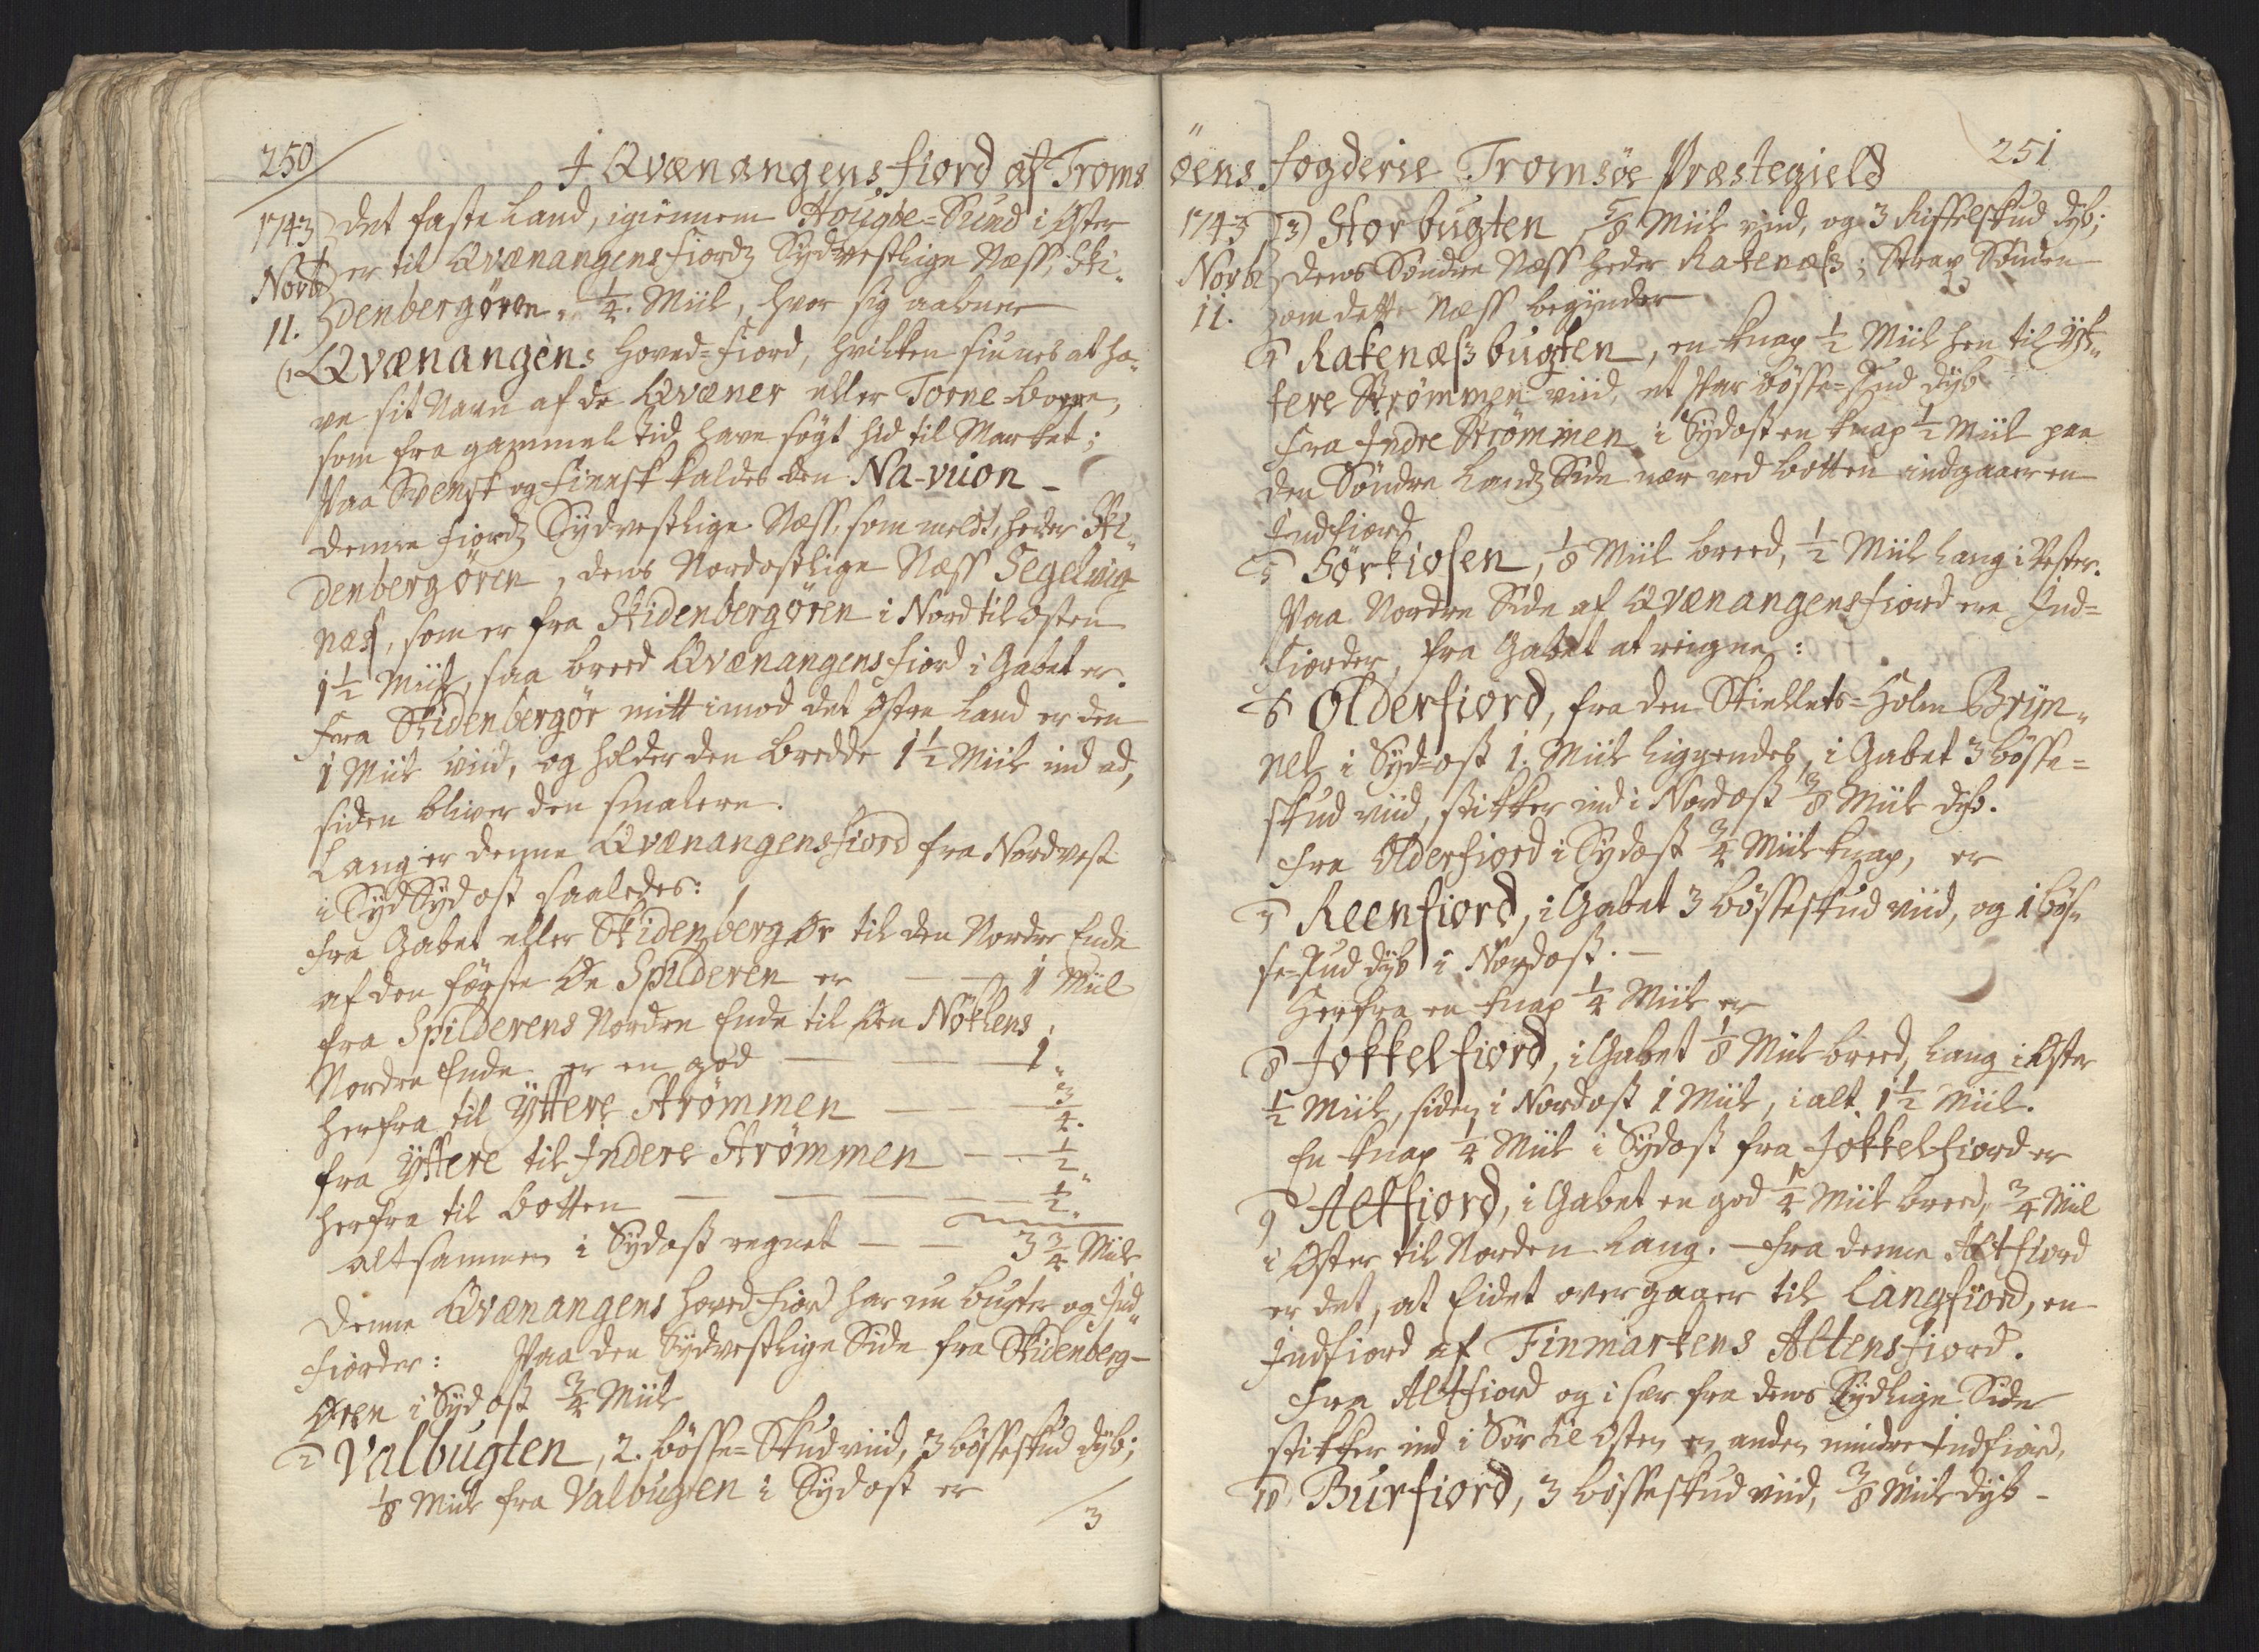 250
I Qvænangens fiord af Troms
1743
Novb
11.
det faste Land, igiennem Hougøe-Sund i Øster
er til Qvænangens fiords Sydvestlige Næss, Ski„
denbergøren, er 1/4. Miil, hvor sig aabner
(1 Qvænangens Hoved-fiord, hvilken siunes at ha„
ve sit Navn af de Qvæner eller Torne-boere,
som fra gammel Tid have søgt hid til Market;
Paa Svensk og finnsk kaldes den Na-vuon -
Denne fiords Sydvestlige Næss, som meldt, heder Ski„
denbergøren, dens Nordostlige Næss Segelvig
næs, som er fra Skidenbergøren i Nord til Osten
1 1/2 Miil, saa breed Qvænangens fiord i Gabet er.
Fra Skidenbergør mitt imod det Østre Land er den
1 Miil viid, og holder den bredde 1 1/2 Miil ind ad,
siden bliver den smalere.
Lang er denne Qvænangensfiord fra Nordvest
i SydSydost saaledes:
fra Gabet eller Skidenberg Ør til den Nordre Ende
af den første Øe Spilderen er — — 1 Miil
fra Spilderens Nordre Ende til Øen Nøklens
Nordre Ende er en god — — 1 „
herfra til Yttere Strømmen — — — 3/4.
fra Yttere til Indere Strømmen — — 1/2 „
herfra til Botten — — — — 1/2.
altsammen i Sydost regnet — — 3 3/4 Miil
Denne Qvænangens Hovedfiord har nu bugter og Ind„
fiorder: Paa den Sydvestlige Side fra Skidenberg-
Øren i Sydost 3/4 Miil
2 Valbugten, 2. bøsse-Skud viid, 3 bøsseskud dyb;
1/8 Miil fra Valbugten i Sydost er
3
øens fogderie Tromsøe Præstegield
251
1743
Novb
11.
3) Storbugten 5/8 Miil viid, og 3 Riffelskud dyb;
dens Søndre Næss heder Rakenæss; Strax Sønden
om dette Næss begynder
4 Rakenæssbugten, en knap 1/2 Miil hen til Yt„
tere Strømmen viid, et par bøsse-skud dyb
Fra Indre Strømmen i Sydost en knap 1/2 Miil paa
den Søndre Lands Side nær ved botten indgaaer en
Indfiord
5 Sørkiosen, 1/8 Miil breed, 1/2 Miil lang i Vester.
Paa Nordre Side af Qvænangensfiord ere Ind=
fiorder, fra Gabet at reigne:
6 Olderfiord, fra den Skiellets-Holm Brÿn„
nel i Syd-ost 1. Miil liggendes, i Gabet 3 bøsse=
skud viid, stikker ind i Nordost 3/8 Miil dyb.
Fra Olderfiord i Sydost 3/4 Miil knap, er
7 Reenfiord, i Gabet 3 bøsseskud viid, og 1 bøs„
se-skud dyb i Nordost. —
Herfra en knap 1/4 Miil er
8 Jokkelfiord, i Gabet 1/8 Miil breed, lang i Øster
1/2 Miil, siden i Nordost 1 Miil, i alt 1 1/2 Miil.
En knap 1/4 Miil i Sydost fra Jokkelfiord er
9 Altfiord, i Gabet en god 1/4 Miil breed, 3/4 Miil
i Øster til Norden lang. — Fra denne Altfiord
er det, at Eidet overgaaer til Langfiord, en
Indfiord af Finmarkens Altensfiord.
Fra Altfiord og i sær fra dens Sydlige Side
stikker ind i Sør til Osten en anden mindre Indfiord,
10 Burfiord, 3 bøsseskud viid, 3/8 Miil dyb -